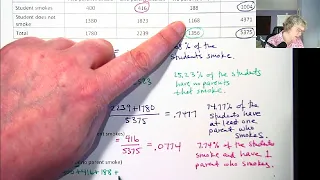 Student smokes 400 416 188 1004
Student does not smoke 1380 1823 1168 4371
Total 1780 2239 1356 5375
% of the
students smoke.
25.23% of the students
have no parents
that smoke.
2239+1780
5375
= .7477
74.77% of the
students have
at least one
parent who
smokes.
smokes)
= 416
5375
= .0774
7.74% of the students
smoke and have 1
parent who smokes.
parent smoke)
+416+188+